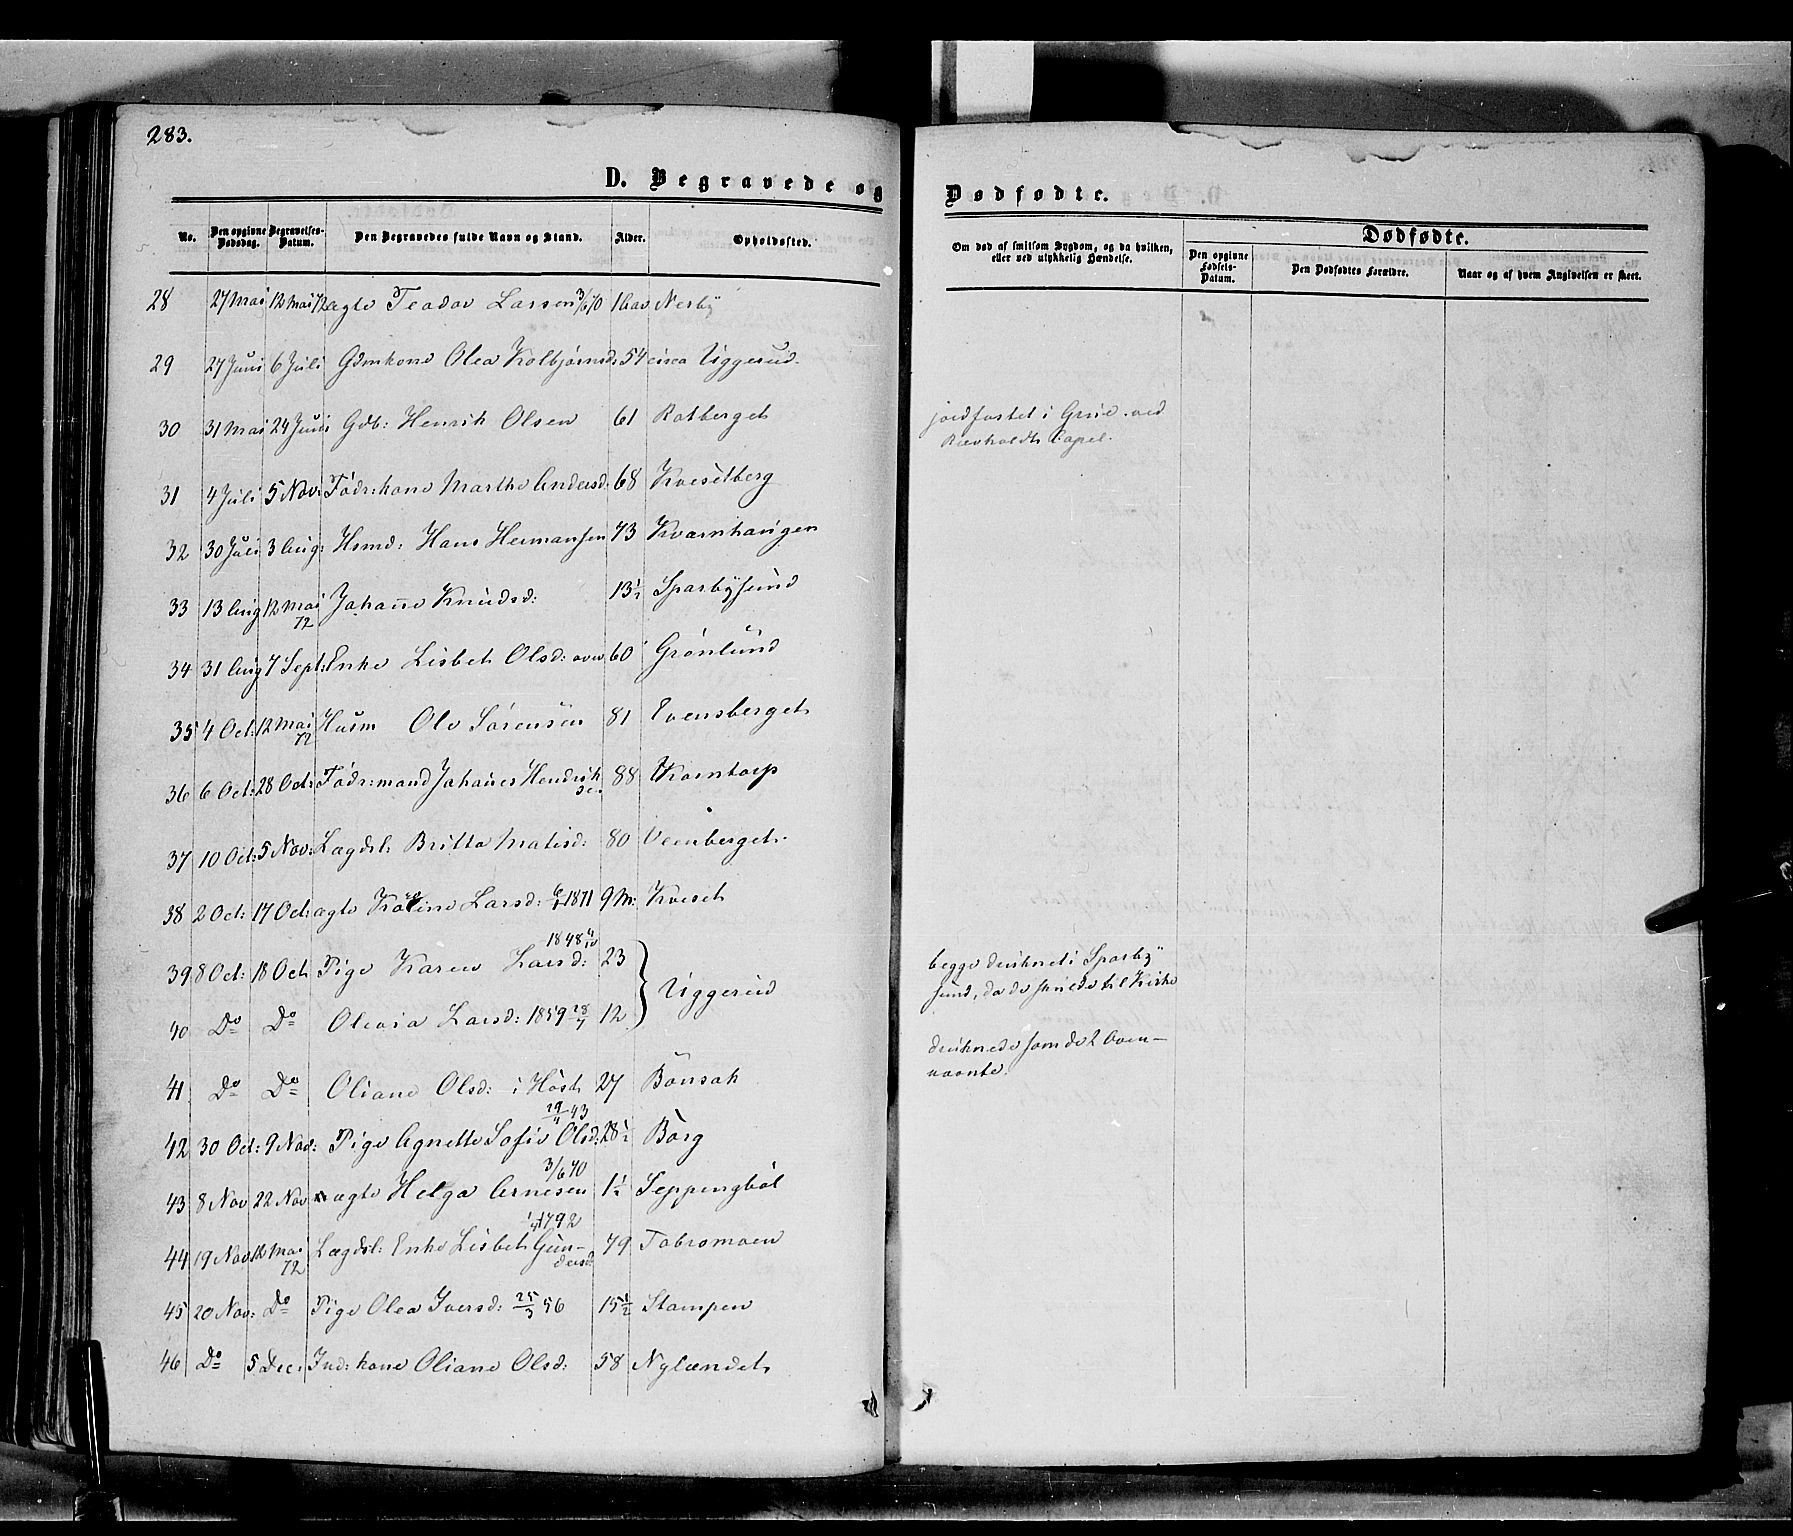 283.
D. Begravede og Dødfødte.
No. Den opgivne Dødsdag. Begravelses-Datum. Den Begravedes fulde Navn og Stand. Alder. Opholdssted. Om død af smitsom Sygdom, og da hvilken, eller ved ulykkelig Hændelse. Dødfødte.
Den opgivne Fødsels-Datum. Den Dødfødtes Forældre. Naar og af hvem Angivelsen er skeet.
28 27 Mai 12 Mai 72 ægte Teodor Larsen 3/6 70 1 aar Nerby
29 27 Juni 6 Juli Gdmkone Olea Kolbjørnsd: 54 circa Uggerud.
30 31 Mai 24 Juni Gdb: Henrik Olsen 61 Rotberget jordfæstet i Grue ved
Revholdts Capel.
31 4 Juli 5 Nov: Födr:kone Marthe Andersd: 68 Kvesetberg
32 30 Juli 3 Aug: Hsmd: Hans Hermansen 73 Kvarnhaugen
33 13 Aug 12 Mai 72 Johanne Knudsd: 13½ Sparbysund
34 31 Aug 7 Sept: Enke Lisbet Olsd: over 60 Grønlund
35 4 Oct: 12 Mai 72 Husm Ole Sørensen 81 Evensberget
36 6 Oct: 28 Oct: Födr:mand Johanes Hendrik
sen 88 Korntorp
37 10 Oct: 5 Nov: Lægdsl: Britta Matisd: 80 Veenberget.
38 2 Oct: 17 Oct: ægte Larsd: 1871 9 M: Kveset
1848 4/10
39 8 Oct: 18 Oct Pige Karen Larsd: 23 Uggerud begge druknet i Sparby
sund, da de skulde til Kirke
40 Do Do Olevia Larsd: 1859 28/7 12
41 Do Do Oliane Olsd: i Høst 27 Bönsak druknede som de 2 Oven-
nævnte.
29/4 43
42 30 Oct: 9 Nov: Pige Agnette Sofie Olsd: 28½ Borg
3/6 70
43 8 Nov 22 Nov ægte Helga Arnesen 1½ Seppingböl
1792
44 19 Nov 12 Mai 72 Lægdsl: Enke Lisbet Gun-
dersd: 79 Tobromoen
45 20 Nov: Do Pige Olea Iversd: 25/3 56 15½ Stampen
46 Do 5 Dec: Ind: kone Oliane Olsd: 58 Nylændet